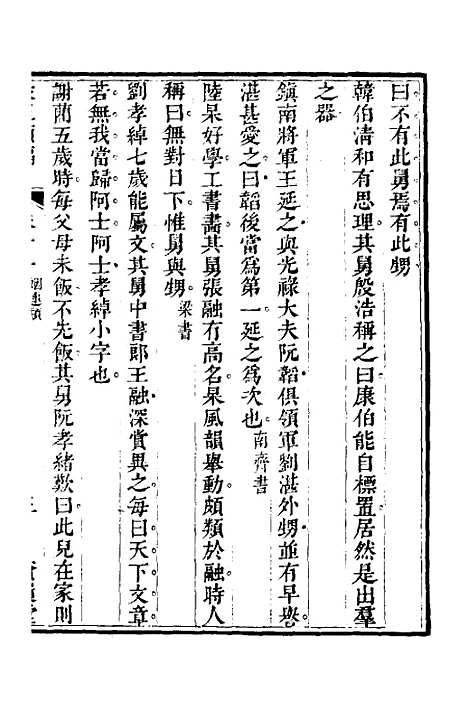 曰不有此舅焉有此甥
韓伯淸和有思理其舅殷浩稱之曰康伯能自標置居然是出羣
之器
鎭南將軍王延之與光祿大夫阮韜俱領軍劉湛外甥並有早譽
湛甚愛之曰韜後當爲第一延之爲次也南齊書
陸杲好學工書畫其舅張融有高名杲風韻舉動頗類於融時人
稱曰無對日下惟舅與甥梁書
劉孝綽七歲能屬文其舅中書郎王融深賞異之每曰天下文章
若無我當歸阿士阿士孝綽小字也
謝藺五歲時每父母未飯不先飯其舅阮孝緒歎曰此兒在家則